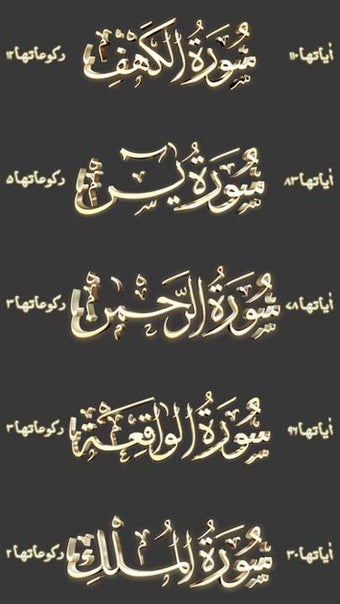 أياتها ۱۱۰ سُورَةُ الكَهْفِ ركوعاتها ۱۲
أياتها ۸۳ سُورَةُ يٰسٓ ركوعاتها ۵
أياتها ۷۸ سُورَةُ الرَّحْمٰن ركوعاتها ۳
أياتها ۹۶ سُورَةُ الوَاقِعَةِ ركوعاتها ۳
أياتها ۳۰ سُورَةُ المُلكِ ركوعاتها ۲